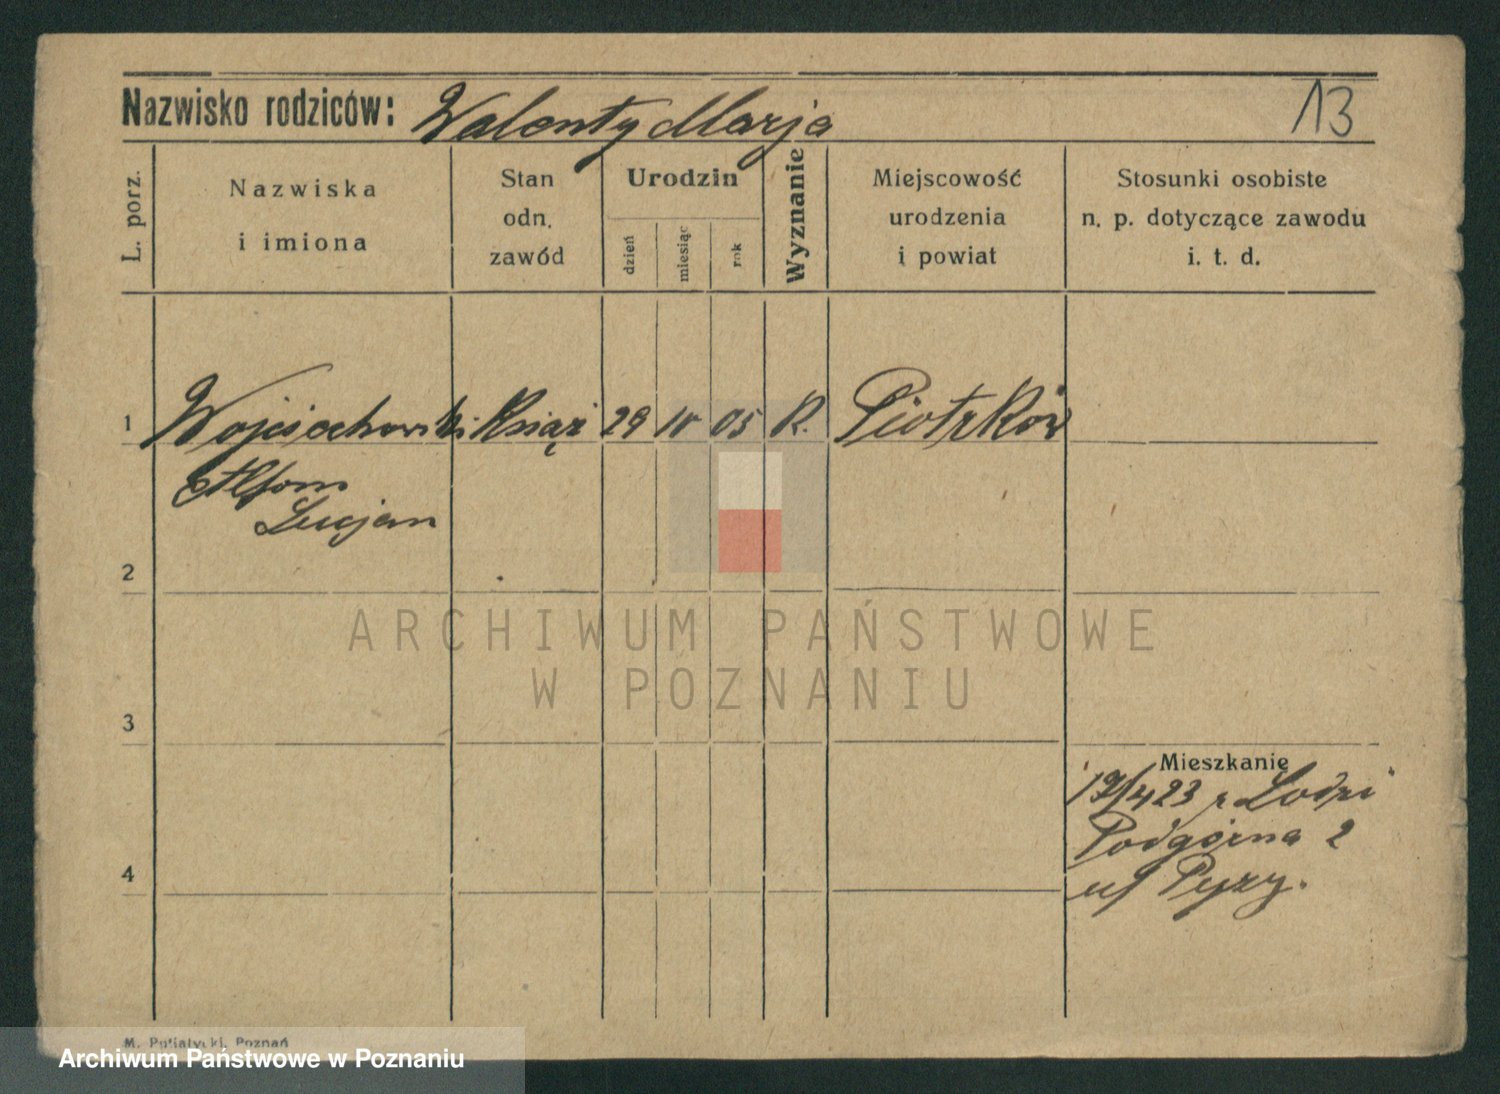 Nazwisko rodziców: Walenty Marja
13
L. porz.
Nazwiska
i imiona
Stan
odn.
zawód
Urodzin
dzień
miesiąc
rok
Wyznanie
Miejscowość
urodzenia
i powiat
Stosunki osobiste
n. p. dotyczące zawodu
i. t. d.
1 Wojciechowski Książ 29 IV 05 R. Piotrków
Alfons
Lucjan
2
3
4
ARCHIWUM PAŃSTWOWE
W POZNANIU
Mieszkanie
19/4 23 z Łodzi
Podgórna 2
u/ Pyzy.
M. Putiatycki, Poznań
Archiwum Państwowe w Poznaniu